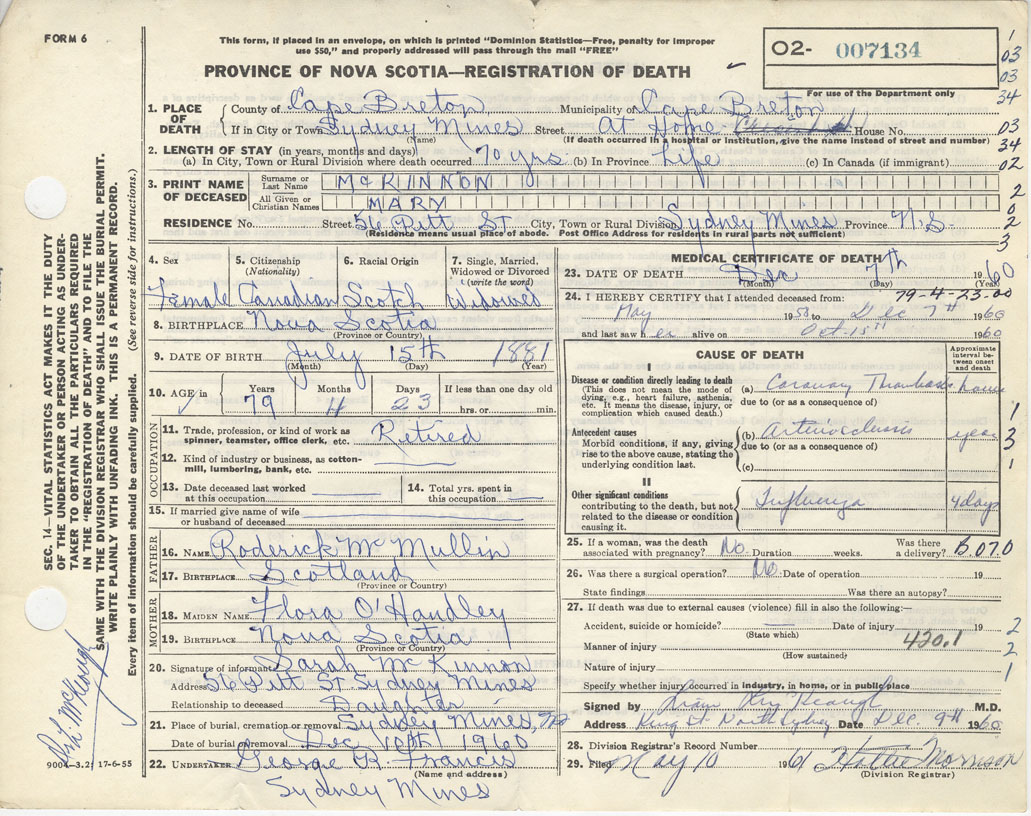 FORM 6
This form, if placed in an envelope, on which is printed "Dominion Statistics—Free, penalty for improper
use $50," and properly addressed will pass through the mail "FREE"
O2- 007134
PROVINCE OF NOVA SCOTIA—REGISTRATION OF DEATH
For use of the Department only
1
03
03
34
03
34
02
2
0
2
3
1. PLACE OF DEATH
County of Cape Breton Municipality of Cape Breton
If in City or Town Sydney Mines Street At Home House No.
(Name) (If death occurred in a hospital or institution, give the name instead of street and number)
2. LENGTH OF STAY (in years, months and days)
(a) In City, Town or Rural Division where death occurred 70 yrs (b) In Province Life (c) In Canada (if immigrant)
3. PRINT NAME OF DECEASED
Surname or Last Name McKINNON
All Given or Christian Names MARY
RESIDENCE No. Street 56 Pitt St City, Town or Rural Division Sydney Mines Province N.S.
(Residence means usual place of abode. Post Office Address for residents in rural parts not sufficient)
4. Sex 5. Citizenship (Nationality) 6. Racial Origin 7. Single, Married, Widowed or Divorced (write the word)
Female Canadian Scotch Widowed
8. BIRTHPLACE Nova Scotia
(Province or Country)
9. DATE OF BIRTH July 15th 1881
(Month) (Day) (Year)
10. AGE in Years Months Days If less than one day old
79 4 23 hrs. or min.
OCCUPATION
11. Trade, profession, or kind of work as
spinner, teamster, office clerk, etc. Retired
12. Kind of industry or business, as cotton-
mill, lumbering, bank, etc.
13. Date deceased last worked
at this occupation
14. Total yrs. spent in
this occupation
15. If married give name of wife
or husband of deceased
FATHER
16. NAME Roderick McMullin
17. BIRTHPLACE Scotland
(Province or Country)
MOTHER
18. MAIDEN NAME Flora O'Handley
19. BIRTHPLACE Nova Scotia
(Province or Country)
20. Signature of informant Sarah McKinnon
Address 56 Pitt St Sydney Mines
Relationship to deceased Daughter
21. Place of burial, cremation or removal Sydney Mines,
Date of burial or removal Dec 10th 1960
22. UNDERTAKER George R. Francis
(Name and address)
Sydney Mines
MEDICAL CERTIFICATE OF DEATH
23. DATE OF DEATH Dec 7th 1960
(Month) (Day)
79-4-23-00
24. I HEREBY CERTIFY that I attended deceased from:
May 1958 to Dec 7th 1960
and last saw her alive on Oct-15th 1960
CAUSE OF DEATH
Approximate interval between onset and death
I
Disease or condition directly leading to death
(This does not mean the mode of
dying, e.g., heart failure, asthenia,
etc. It means the disease, injury, or
complication which caused death.)
(a) Coronary Thrombosis hours
due to (or as a consequence of)
Antecedent causes
Morbid conditions, if any, giving
rise to the above cause, stating the
underlying condition last.
(b) Arteriosclerosis years
due to (or as a consequence of)
(c)
1
3
1
II
Other significant conditions
contributing to the death, but not
related to the disease or condition
causing it.
Influenza 4 days
25. If a woman, was the death
associated with pregnancy? No Duration weeks. Was there
a delivery? B.070
26. Was there a surgical operation? No Date of operation 19
State findings Was there an autopsy?
27. If death was due to external causes (violence) fill in also the following:—
Accident, suicide or homicide? Date of injury 19
(State which)
Manner of injury 420.1
(How sustained)
Nature of injury
2
2
1
Specify whether injury occurred in industry, in home, or in public place
Signed by M.D.
Address King St North Sydney Date Dec. 9th 1960
28. Division Registrar's Record Number
29. Filed May 10 1961 Hattie Morrison
(Division Registrar)
SEC. 14—VITAL STATISTICS ACT MAKES IT THE DUTY
OF THE UNDERTAKER OR PERSON ACTING AS UNDER-
TAKER TO OBTAIN ALL THE PARTICULARS REQUIRED
IN THE "REGISTRATION OF DEATH" AND TO FILE THE
SAME WITH THE DIVISION REGISTRAR WHO SHALL ISSUE THE BURIAL PERMIT.
WRITE PLAINLY WITH UNFADING INK. THIS IS A PERMANENT RECORD.
Every item of information should be carefully supplied. (See reverse side for instructions.)
9004—3.2: 17-6-55